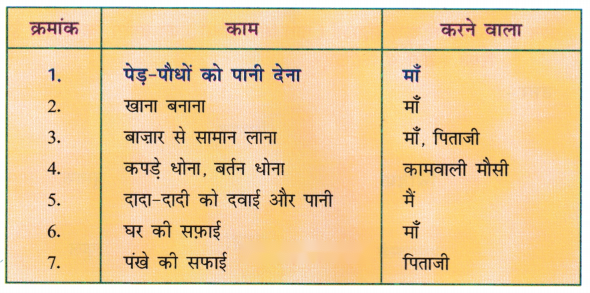 क्रमांक काम करने वाला
1. पेड़-पौधों को पानी देना माँ
2. खाना बनाना माँ
3. बाज़ार से सामान लाना माँ, पिताजी
4. कपड़े धोना, बर्तन धोना कामवाली मौसी
5. दादा-दादी को दवाई और पानी मैं
6. घर की सफ़ाई माँ
7. पंखे की सफाई पिताजी